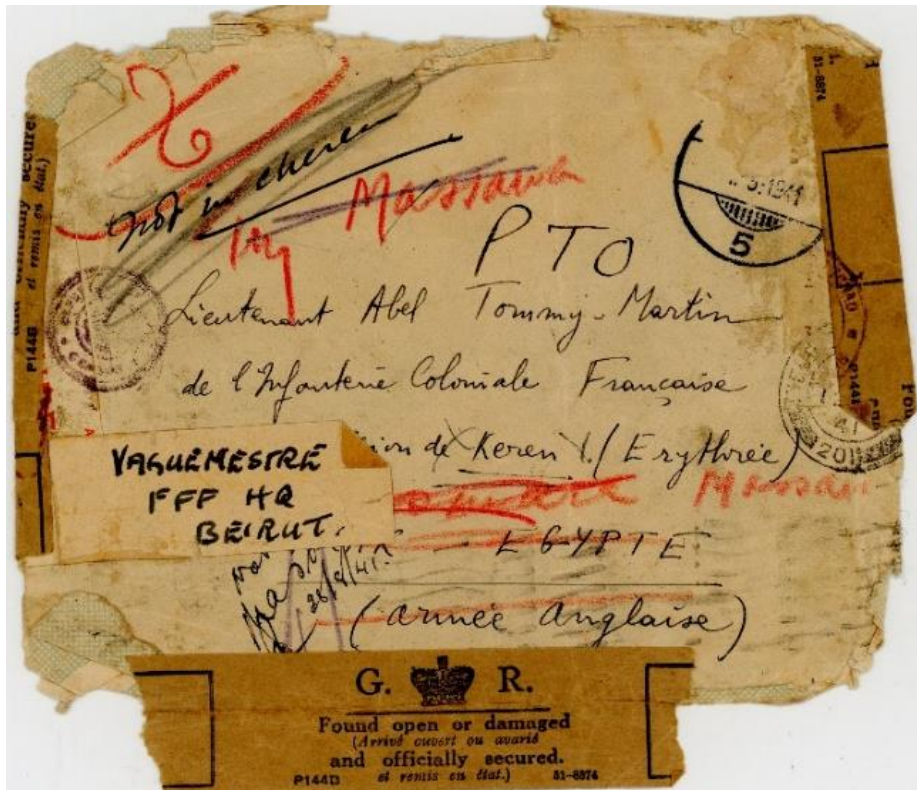 not in cheren
try Massawa
PTO
5.1941
5
Lieutenant Abel Tommy-Martin
de l'Infanterie Coloniale Française
ion de Keren (Erythrée)
VAGUEMESTRE
FFF HQ
BEIRUT.
EGYPTE
(Armée Anglaise)
G. R.
Found open or damaged
(Arrivé ouvert ou avarié
and officially secured.
et remis en état.)
P144B 51-8874
secured
et remis en état.)
P144B
51-8874
41
201